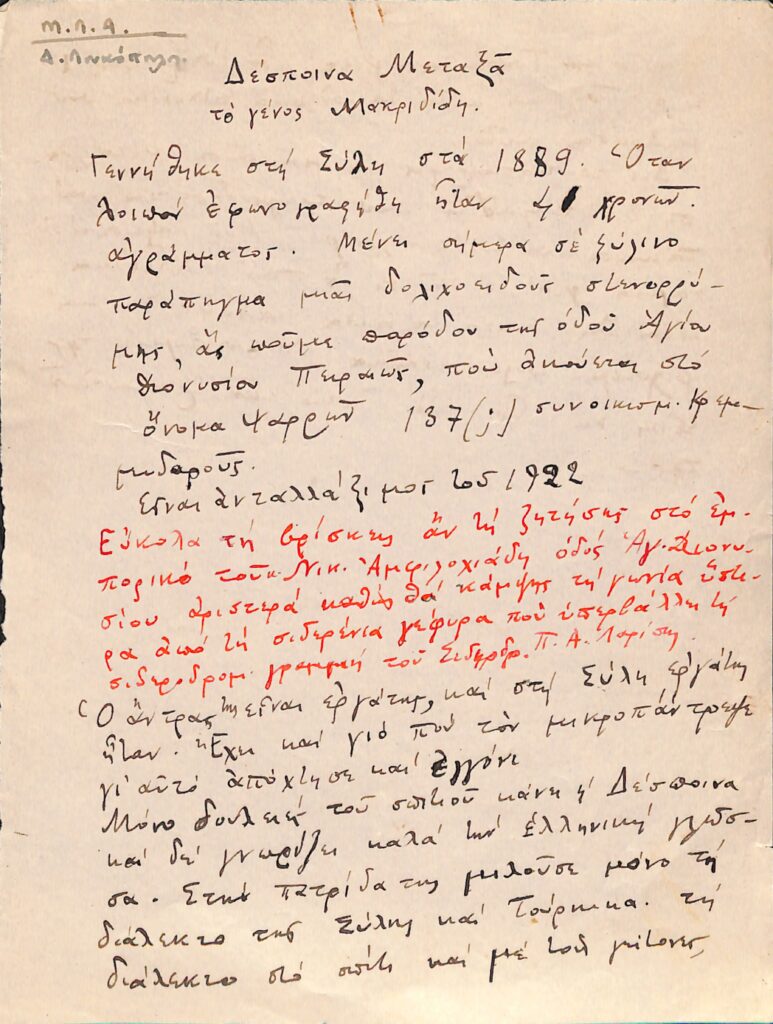 Μ.Λ.Α.
Δ. Λουκόπουλ.
Δέσποινα Μεταξᾶ
τὸ γένος Μακριδίδη.
Γεννήθηκε στὴ Σύλη στὰ 1889. Ὅταν
λοιπὸν ἐφωνογραφήθη ἦταν 41 χρονῶν.
ἀγράμματος. Μένει σήμερα σὲ ξύλινο
παράπηγμα μιᾶς δολιχοειδοῦς στενορρύ-
μης, ἂς ποῦμε παρόδου της ὁδοῦ Ἁγίου
Διονυσίου Πειραιῶς, ποὺ ἀκούεται στὸ
ὄνομα Ψαρρῶν 137 (;) συνοικισμ. Κρεμ-
μυδαροῦς.
Εἶναι ἀνταλλάξιμος τοῦ 1922
Εὔκολα τὴ βρίσκεις ἂν τὴ ζητήσης στὸ ἐμ-
πορικὸ τοῦ κ. Νικ. Ἀμφιλοχιάδη ὁδὸς Ἁγ. Διονυ-
σίου ἀριστερὰ καθὼς θὰ κάμψης τὴ γωνία ὕστε-
ρα ἀπὸ τὴ σιδερένια γέφυρα ποὺ ὑπερβάλλει τὴ
σιδηροδρομ. γραμμὴ τοῦ Σιδηρδρ. Π. Α. Λαρίσης.
Ὁ ἄντρας της εἶναι ἐργάτης, καὶ στὴ Σύλη ἐργάτης
ἦταν. Ἔχει καὶ γιὸ ποὺ τὸν μικροπάντρεψε
γι' αὐτὸ ἀπόχτησε καὶ ἐγγόνι
Μόνο δουλειὲς τοῦ σπιτιοῦ κάνει ἡ Δέσποινα
καὶ δὲ γνωρίζει καλὰ τὴν ἑλληνικὴ γλῶσ-
σα. Στὴν πατρίδα της μιλοῦσε μόνο τὴ
διάλεκτο της Σύλης καὶ Τούρκικα. τὴ
διάλεκτο στὸ σπίτι καὶ μὲ τοὺς γείτονες,